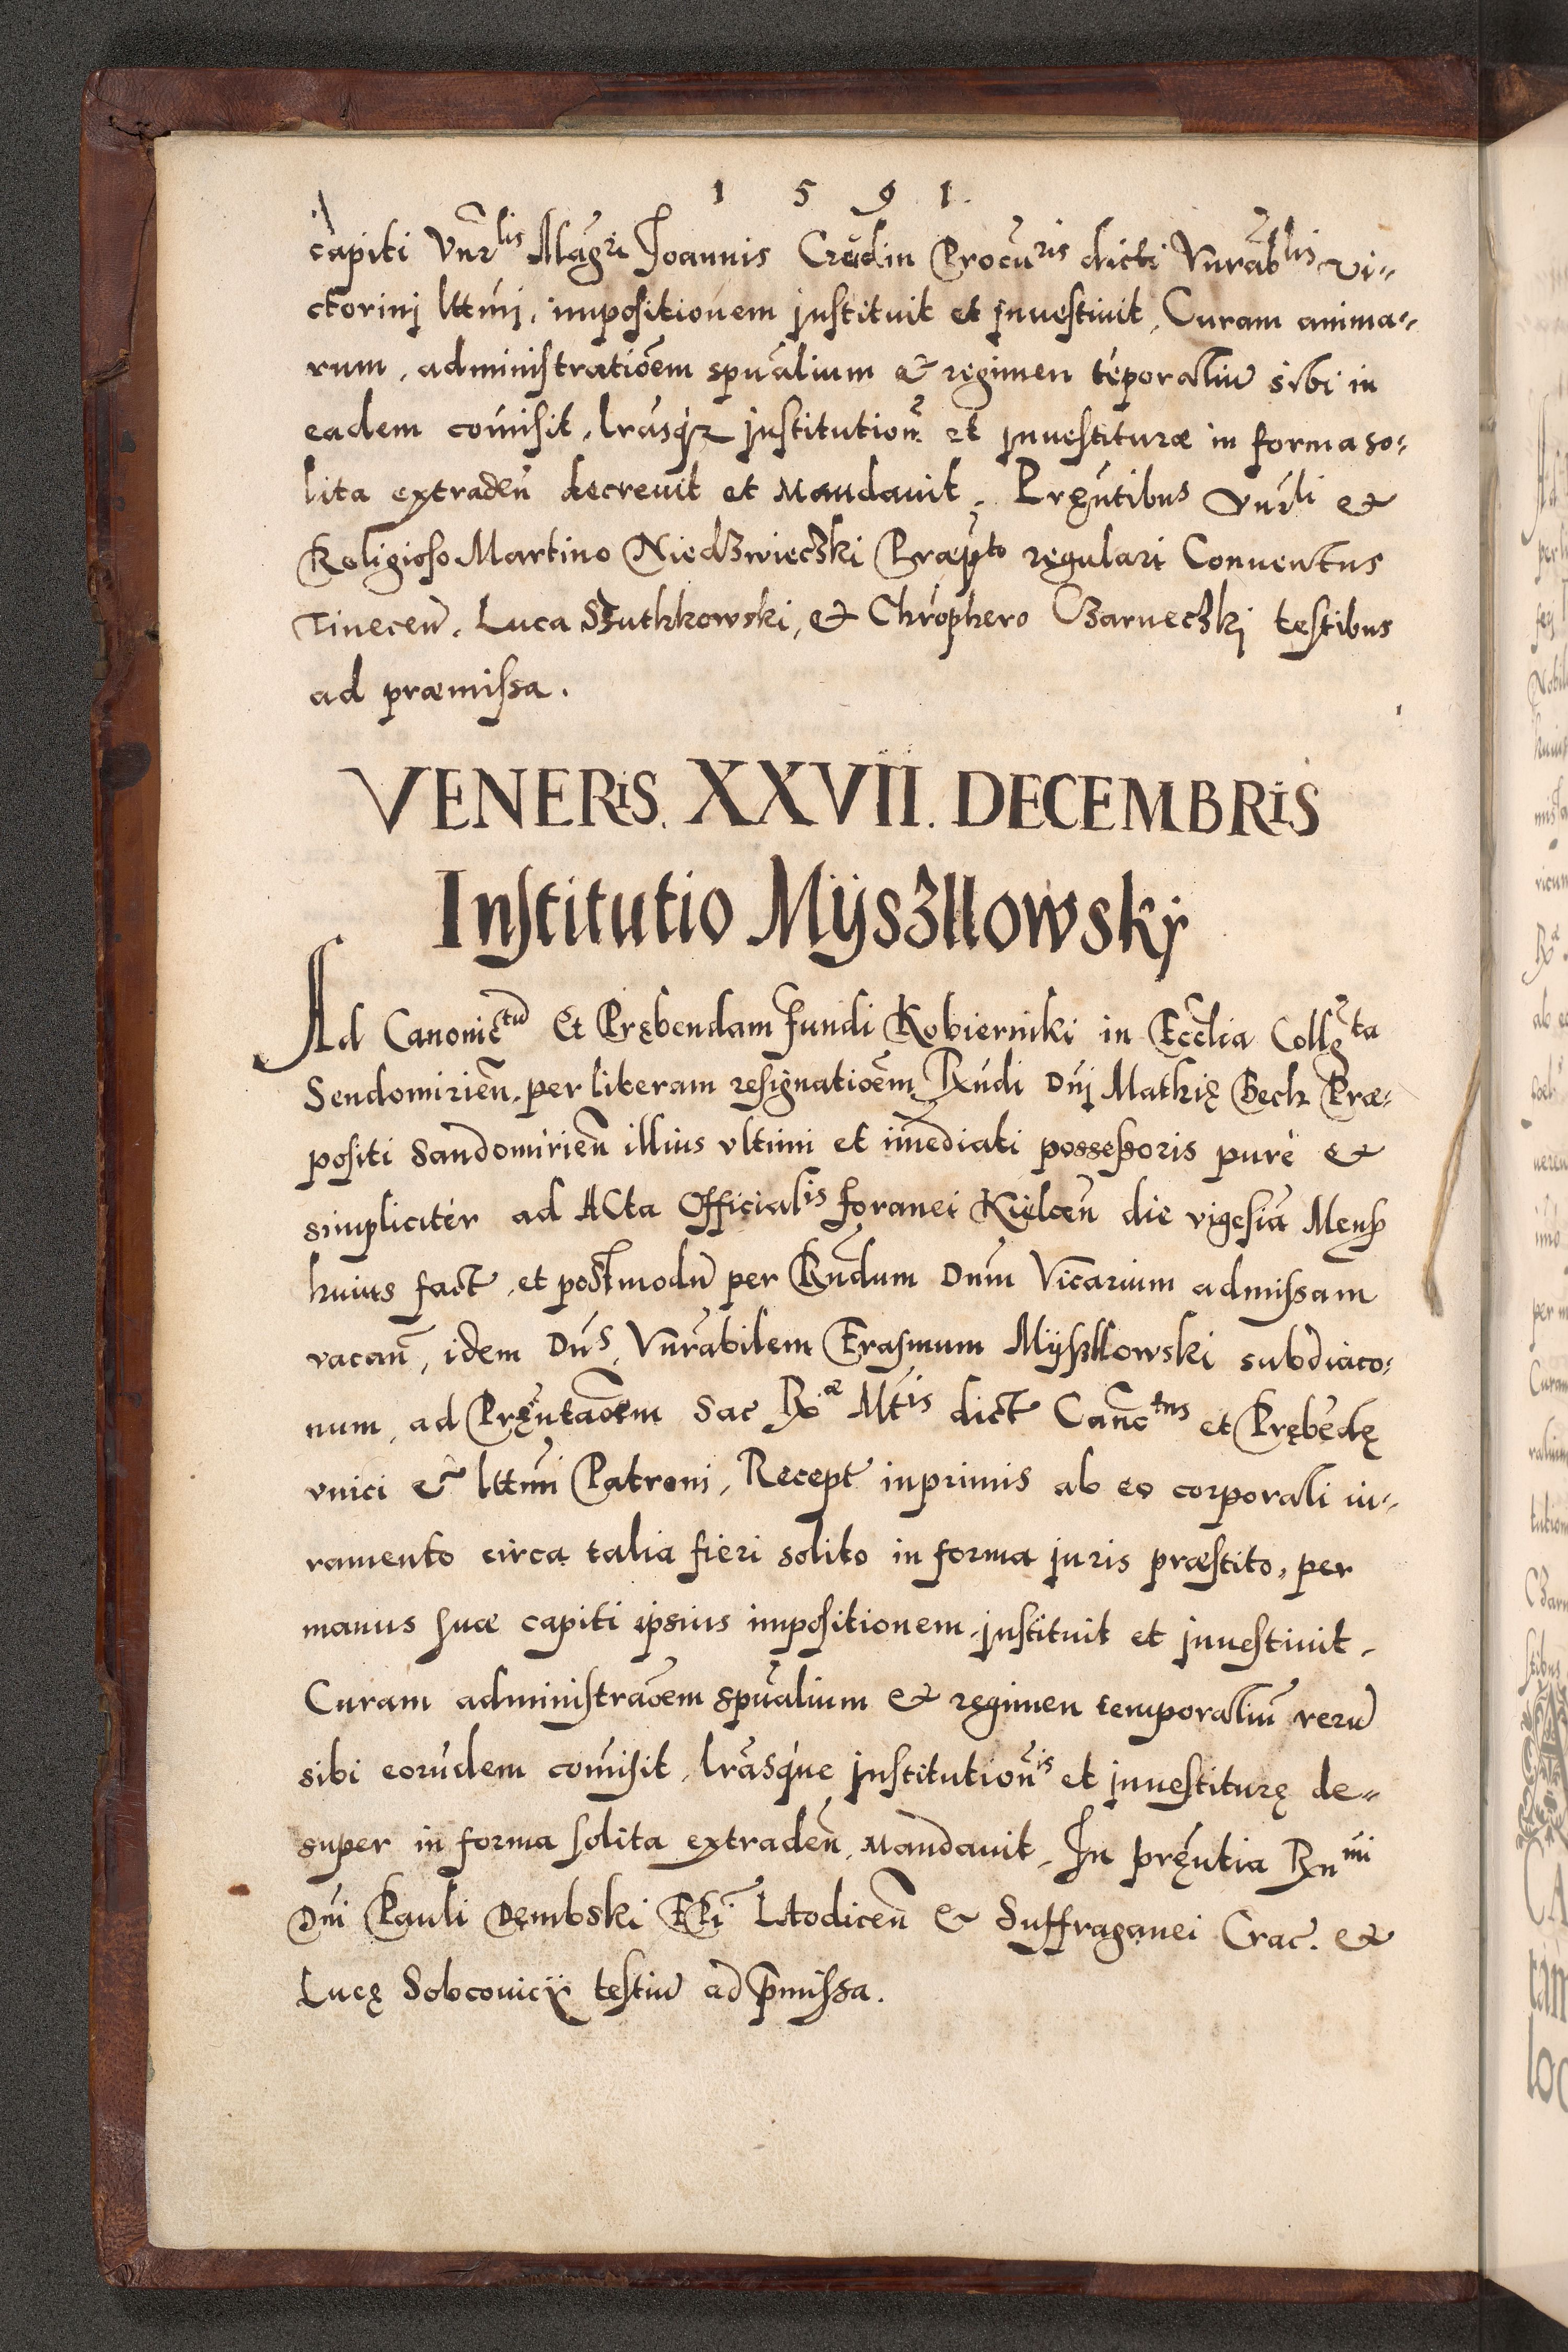 1 5 9 1.
capiti Vnrlis Magri Joannis Crudin Procuris dicti Vnrablis Vi„
ctorinj lttmj, impositionem jnstituit et jnuestiuit, Curam anima„
rum, administratioem spualium et regimen teporaliu sibi in
eadem comisit, lrasq3 jnstitution et jnuestituræ in forma so„
lita extraden decreuit et Mandauit, Pręntibus Vnrli et
Religioso Martino Niedzwieczki Præpto regulari Conuentus
Tinecen, Luca Szuthkowski, et Chrophero Czarneczkj testibus
ad præmissa.
VENERIS. XXVII. DECEMBRIS
Institutio Mÿszllowskÿ
Ad Canonictu Et Prębendam fundi Kobierniki in Ecclia Collęta
Sendomirien. per liberam resignatioem Rndi Dnj Mathię Bech Præ„
positi Sandomirien illius vltimi et imediati possessoris purè et
simplicitèr ad ACta Officialis foranei Kielcen die vigesia Mens
huius fact, et postmodu per Rndum Dnm Vicarium admissam
vacan, idem Dns, Vnrabilem Erasmum Mÿszllowski subdiaco„
num, ad Pręntaoem Sac Rx æ Mtis dict Canctus et Prębedę
vnici et lttmi Patroni, Recept inprimis ab eo corporali iu„
ramento circa talia fieri solito in forma juris præstito, per
manus suæ capiti ipsius impositionem jnstituit et jnuestiuit,
Curam administraoem spualium et regimen temporaliu reru
sibi eorudem comisit, lrasque jnstitutionis et jnuestiturę de„
super in forma solita extraden, Mandauit, In pręntia Rnmi
Dni Pauli Dembski EPi Laodicen et Suffraganei Crac. et
Lucę Sobcouicÿ testiu ad pmissa.